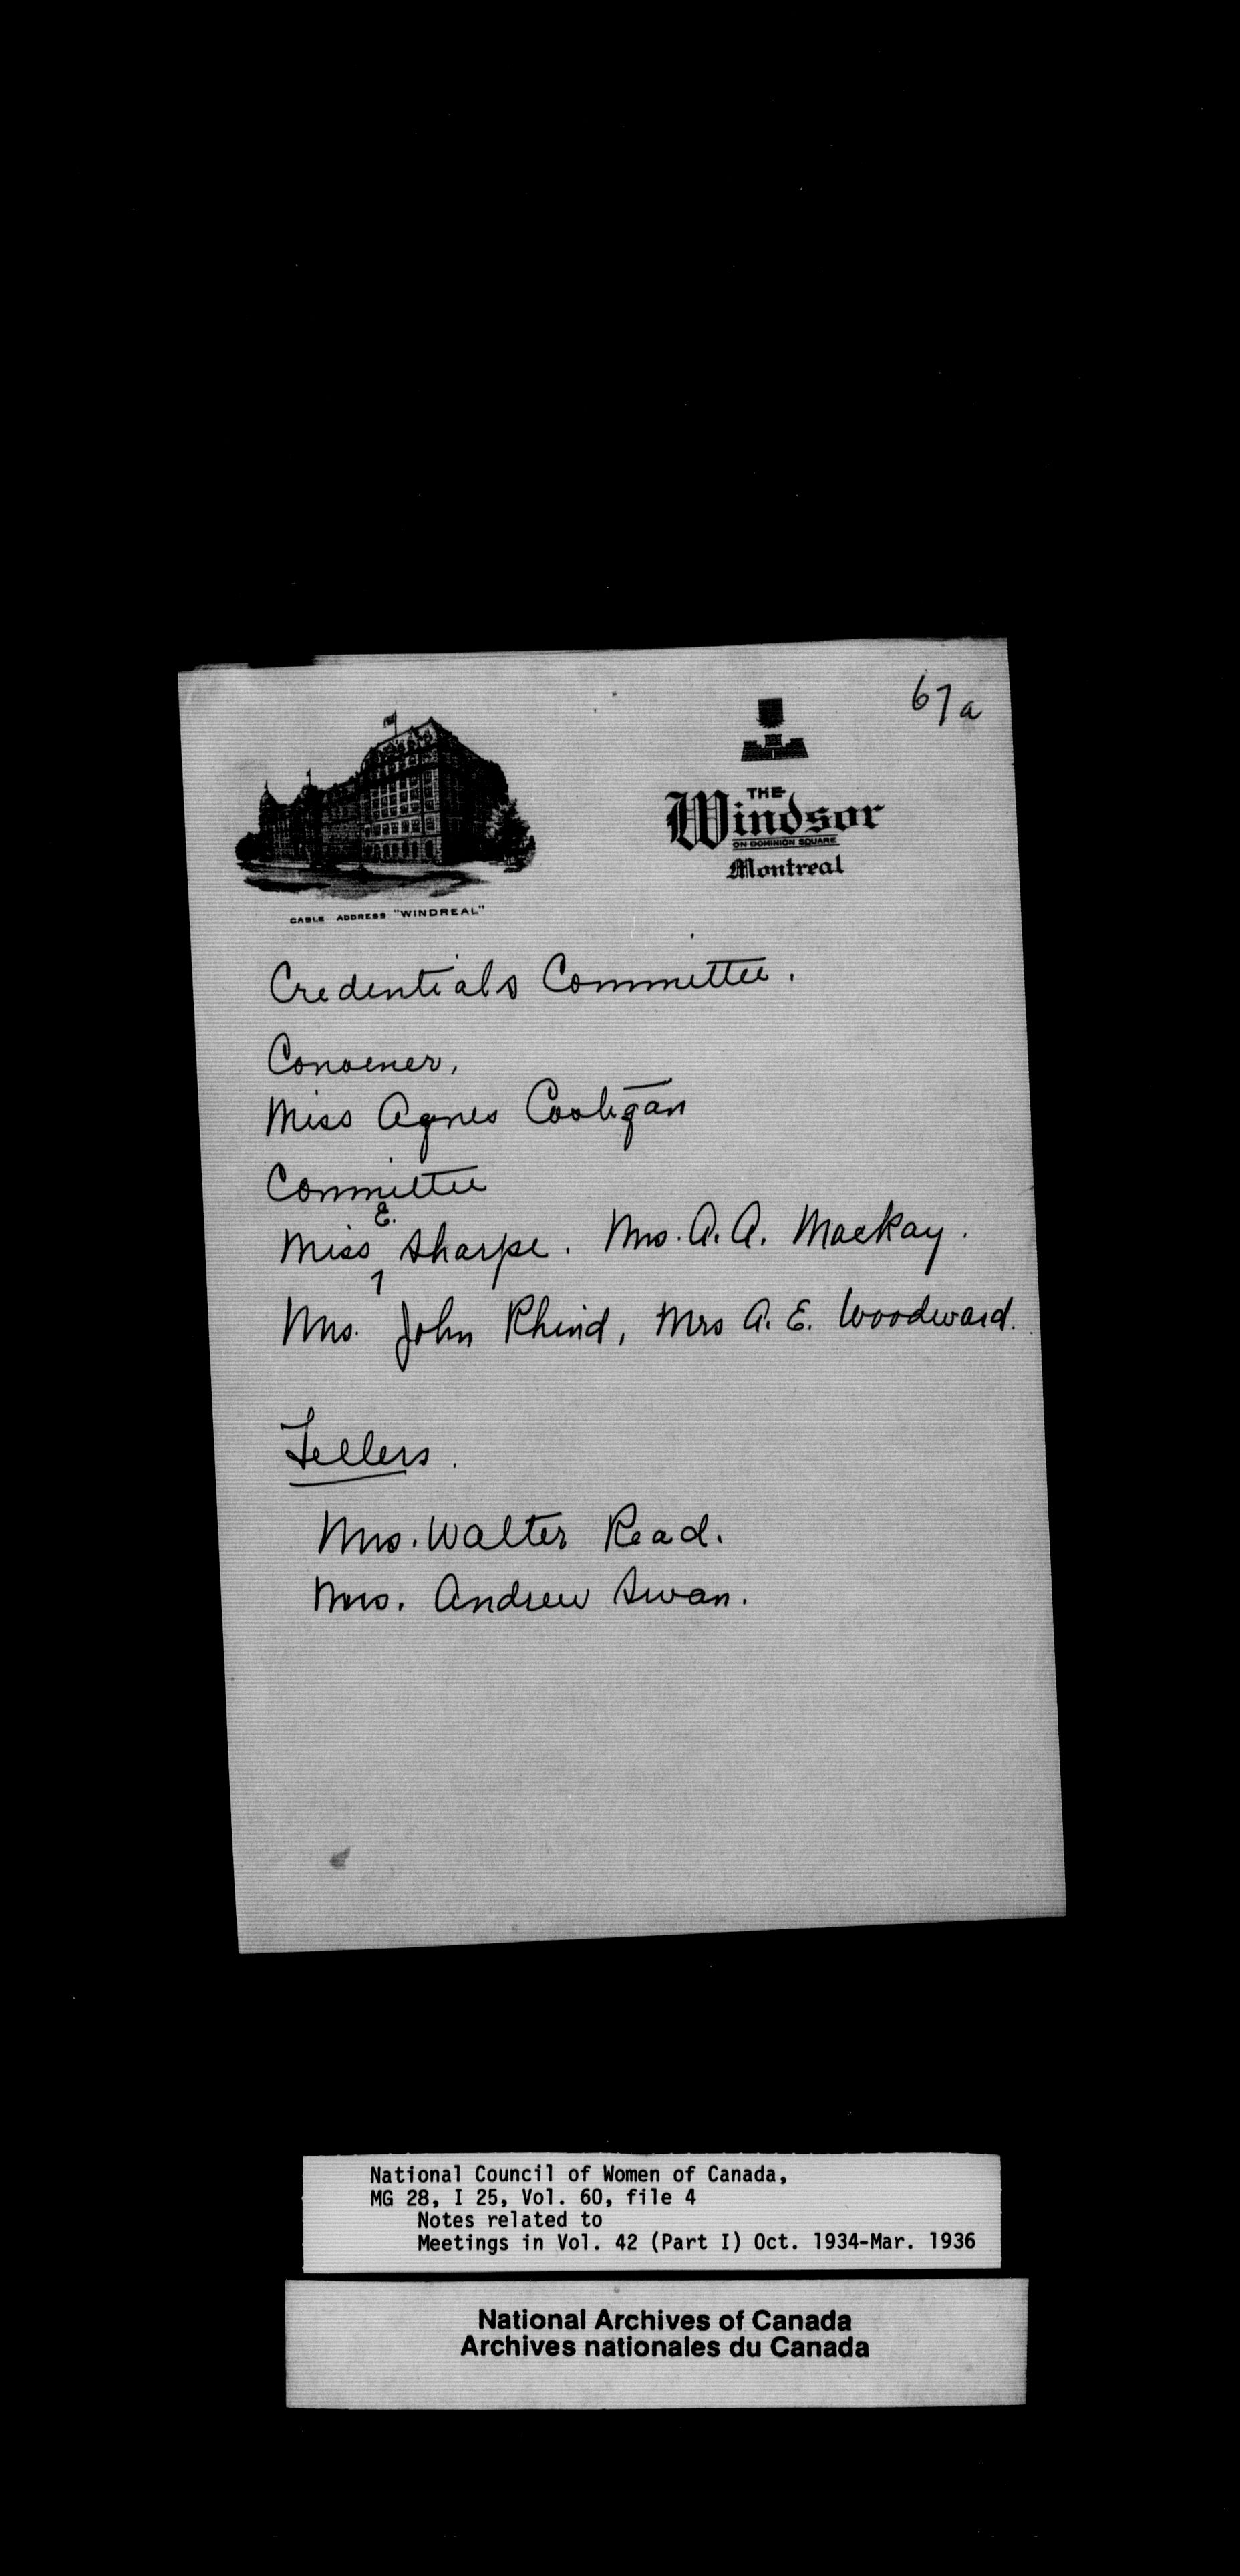 67a
THE
Windsor
ON DOMINION SQUARE
Montreal
CABLE ADDRESS "WINDREAL"
Credentials Committee.
Convener,
Miss Agnes Cooligan
Committee
Miss E. Sharpe. Mrs. A. A. Mackay.
Mrs. John Rhind, Mrs A. E. Woodward.
Tellers.
Mrs. Walter Read.
Mrs. Andrew Swan.
National Council of Women of Canada,
MG 28, I 25, Vol. 60, file 4
Notes related to
Meetings in Vol. 42 (Part I) Oct. 1934-Mar. 1936
National Archives of Canada
Archives nationales du Canada